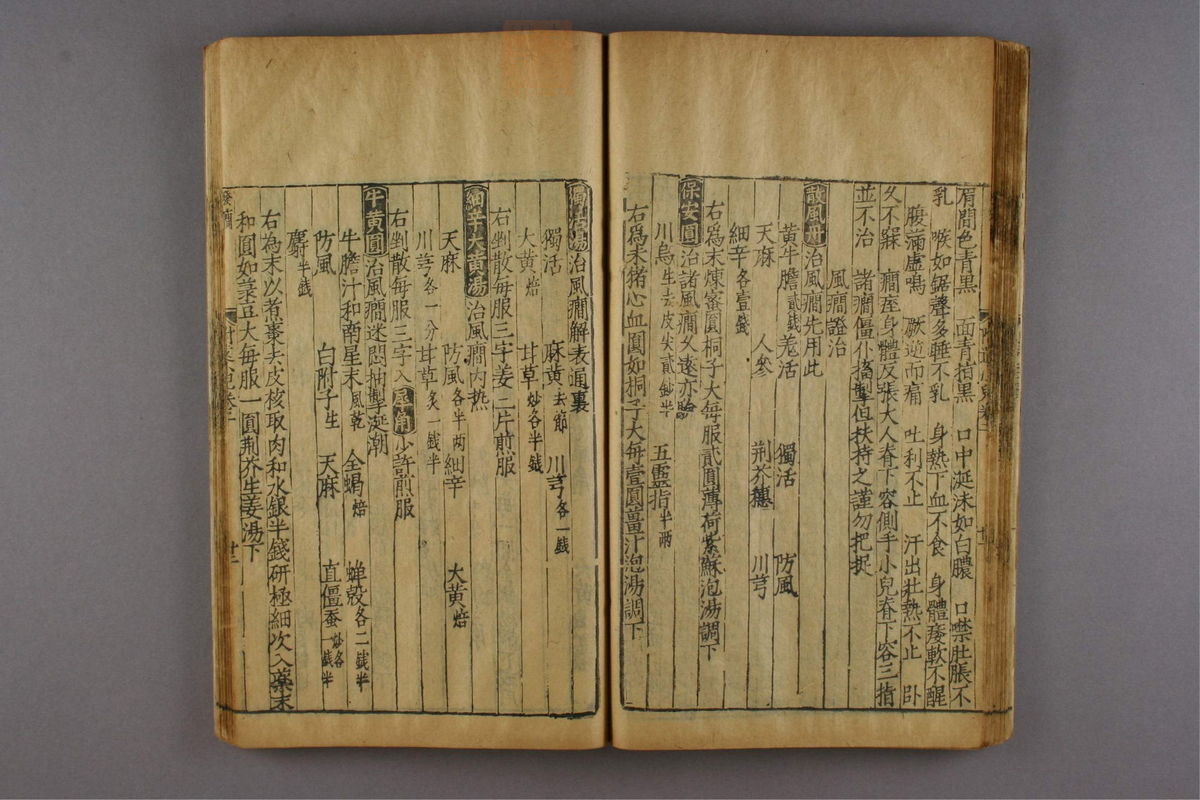 眉間色青黑 面青指黑 口中涎沫如白膿 口噤肚脹不
乳 喉如鋸聲多睡不乳 身熱下血不食 身體痿軟不醒
腹滿虛鳴 厥逆而痛 吐利不止 汗出壯熱不止 卧
久不寤 癎痓身體反張大人脊下容側手小兒脊下容三指
並不治 諸癎僵仆搐掣但扶持之謹勿把捉
風癎證治
散風丹治風癎先用此
黃牛膽貳錢羗活 獨活 防風
天麻 人參 荆芥穗 川芎
細辛各壹錢
右爲末煉蜜圓桐子大每服貳圓薄荷紫蘇泡湯調下
保安圓治諸風癎久遠亦驗
川烏生去皮尖貳錢半 五靈指半兩
右爲末猪心血圓如桐子大每壹圓薑汁泡湯調下
獨活湯治風癎解表通裏
獨活 麻黃去節 川芎各一錢
大黃焙 甘草炒各半錢
右剉散每服三字姜二片煎服
細辛大黃湯治風癎內熱
天麻 防風各半兩細辛 大黃焙
川芎各一分甘草炙一錢半
右剉散每服三字入犀角少許煎服
牛黃圓治風癎迷悶抽掣涎潮
牛膽汁和南星末風乾 全蝎焙 蟬殼各二錢半
防風 白附子生 天麻 直僵蚕炒各一錢半
麝半錢
右為末以煮棗去皮核取肉和水銀半錢研極細次入藥末
和圓如菉豆大每服一圓荆芥生姜湯下
發癎